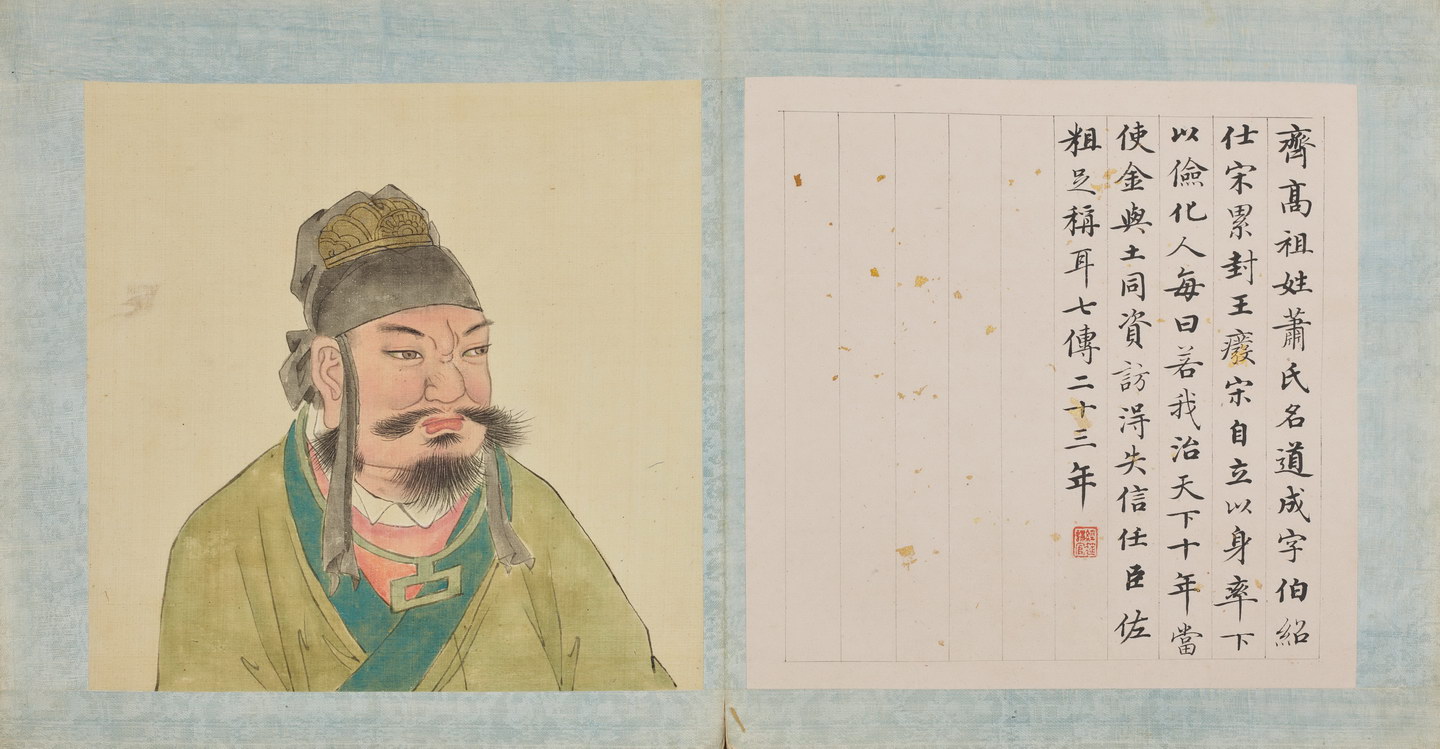 齊髙祖姓蕭氏名道成字伯紹
仕宋累封王癈宋自立以身率下
以儉化人每曰若我治天下十年當
使金與土同資訪淂失信任臣佐
粗足稱耳七傳二十三年